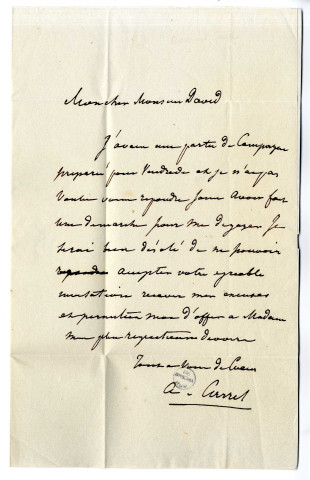 Mon cher Monsieur David
J'avais une partie de Campagne
préparée pour Vendredi et je n'ai pas
Voulu vous repondre Sans Avoir fait
une demarche pour me dégager Je
serai bien désolé de ne pouvoir
accepter votre agréable
invitation recevez mes excuses
et permettez moi d'offrir a Madame
mes plus respectueux devoirs
Tout a Vous de Coeur
A. Carrel